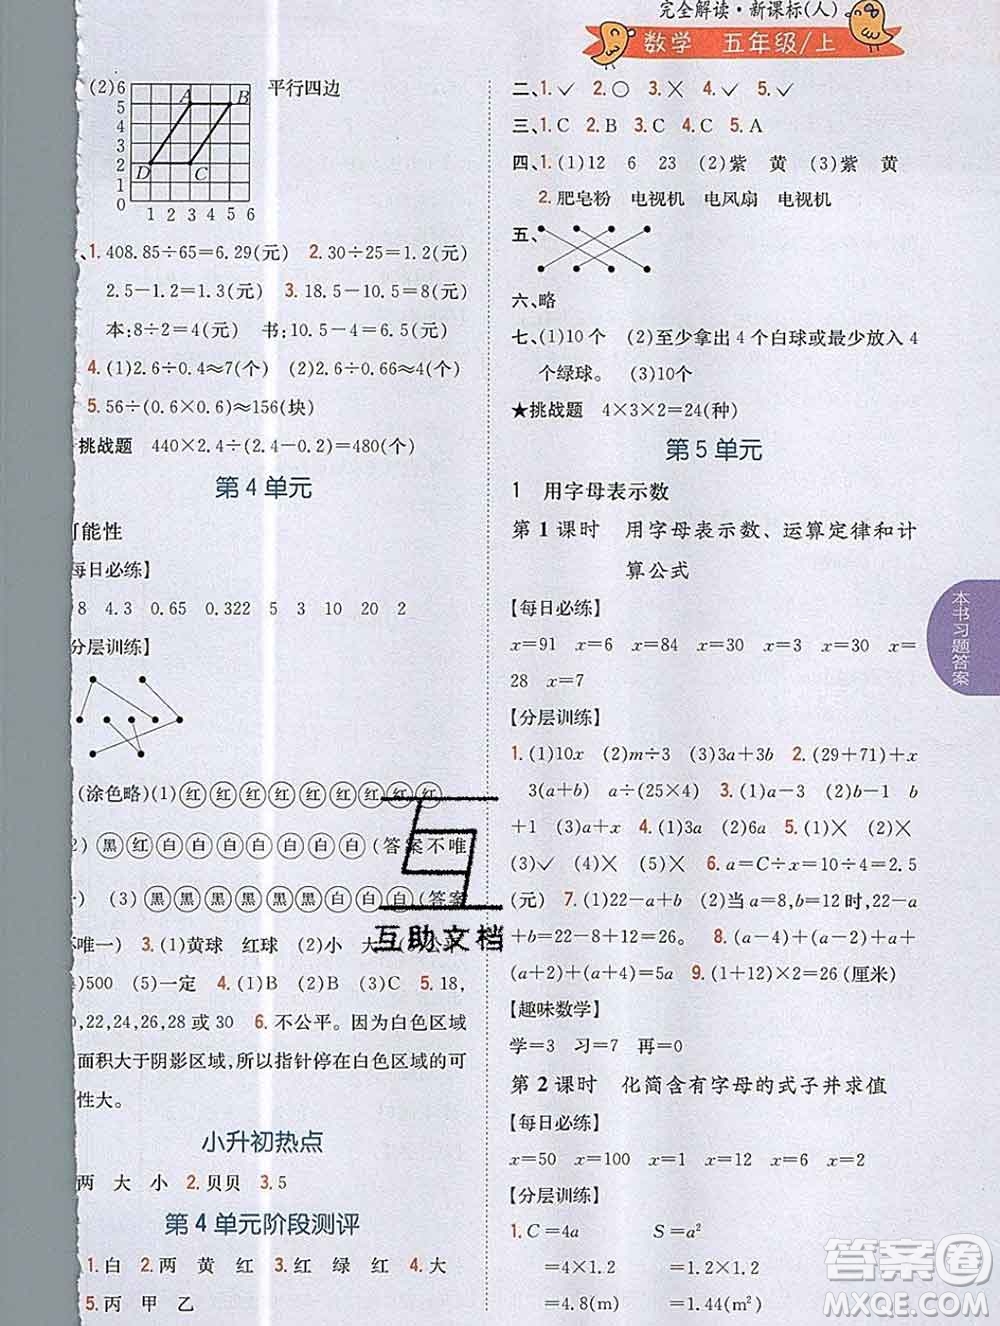 完全解读·新课标(人)
数学 五年级/上
(2) 6 平行四边
5
4
3
2
1
0
A B
D C
1 2 3 4 5 6
、1. 408.85÷65=6.29(元) 2. 30÷25=1.2(元)
2.5-1.2=1.3(元) 3. 18.5-10.5=8(元)
本:8÷2=4(元) 书:10.5-4=6.5(元)
4. (1)2.6÷0.4≈7(个) (2)2.6÷0.4≈6(个)
5. 56÷(0.6×0.6)≈156(块)
挑战题 440×2.4÷(2.4-0.2)=480(个)
第 4 单元
可能性
每日必练】
8 4.3 0.65 0.322 5 3 10 20 2
分层训练】
(涂色略)(1)红红红红红红红红
2) 黑红白白白白白白(答案不唯
) (3)黑黑黑黑黑白白白(答案
不唯一) 3. (1)黄球 红球 (2)小 大
)500 (5)一定 4. (1)B (2)B (3)C 5. 18,
0,22,24,26,28 或 30 6. 不公平。因为白色区域
面积大于阴影区域,所以指针停在白色区域的可
性大。
小升初热点
两 大 小 2. 贝贝 3. 5
第 4 单元阶段测评
1. 白 2. 两 黄 红 3. 红 绿 红 4. 大
5. 丙 甲 乙
二、1. ✓ 2. ○ 3. ╳ 4. ✓ 5. ✓
三、1. C 2. B 3. C 4. C 5. A
四、1. (1)12 6 23 (2)紫 黄 (3)紫 黄
2. 肥皂粉 电视机 电风扇 电视机
五、
六、略
七、(1)10个 (2)至少拿出 4 个白球或最少放入 4
个绿球。 (3)10个
★挑战题 4×3×2=24(种)
第 5 单元
1 用字母表示数
第 1 课时 用字母表示数、运算定律和计
算公式
【每日必练】
x=91 x=6 x=84 x=30 x=3 x=
28 x=7
【分层训练】
1. (1)10x (2)m÷3 (3)3a+3b 2. (29+71)+x
3(a+b) a÷(25×4) 3. (1)b-1 (2)2x b
+1 (3)a 4. (1)3a (2)6a 5. (1)╳ (2)╳
(3)✓ (4)╳ (5)╳ 6. a=C÷x=10÷4=2.5
(元) 7. (1)22-a+b (2)当 a=8,b=12 时,22-a
+b=22-8+12=26 8. (a-4)+(a-2)+a+(a
+2)+(a+4)=5a 9. (1+12)×2=26 (厘米)
【趣味数学】
学=3 习=7 再=0
第 2 课时 化简含有字母的式子并求值
【每日必练】
x=50 x=100 x=1 x=40 x=2
【分层训练】
1. C=4a S=a²
=4×1.2 =1.2×1.2
=4.8(m) =1.44(m²)
本书习题答案
互助文档
答案圈
MXQE.COM